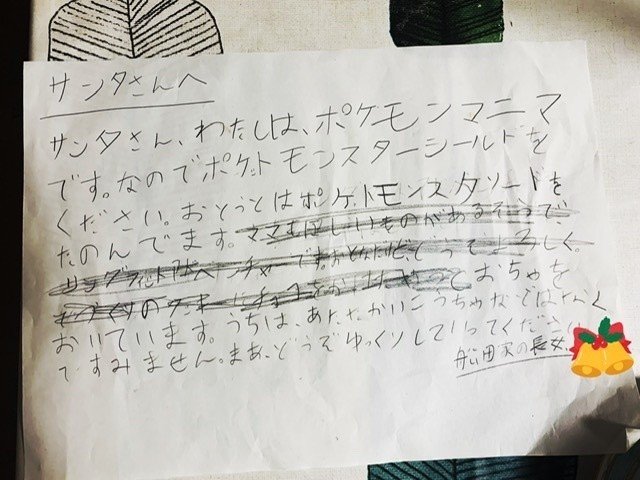 サンタさんへ
サンタさん、わたしは、ポケモンマニマ
です。なのでポケットモンスターシールドを
ください。おとうとはポケットモンスタソードを
たのんでます。ママもほしいものがあるそうで、
です。 よろしく。
おちゃを
おいています。うちは、あたたかいこうちゃなではなく
てすみません。まあ、どうぞゆっくりしていってください
船田家の長女